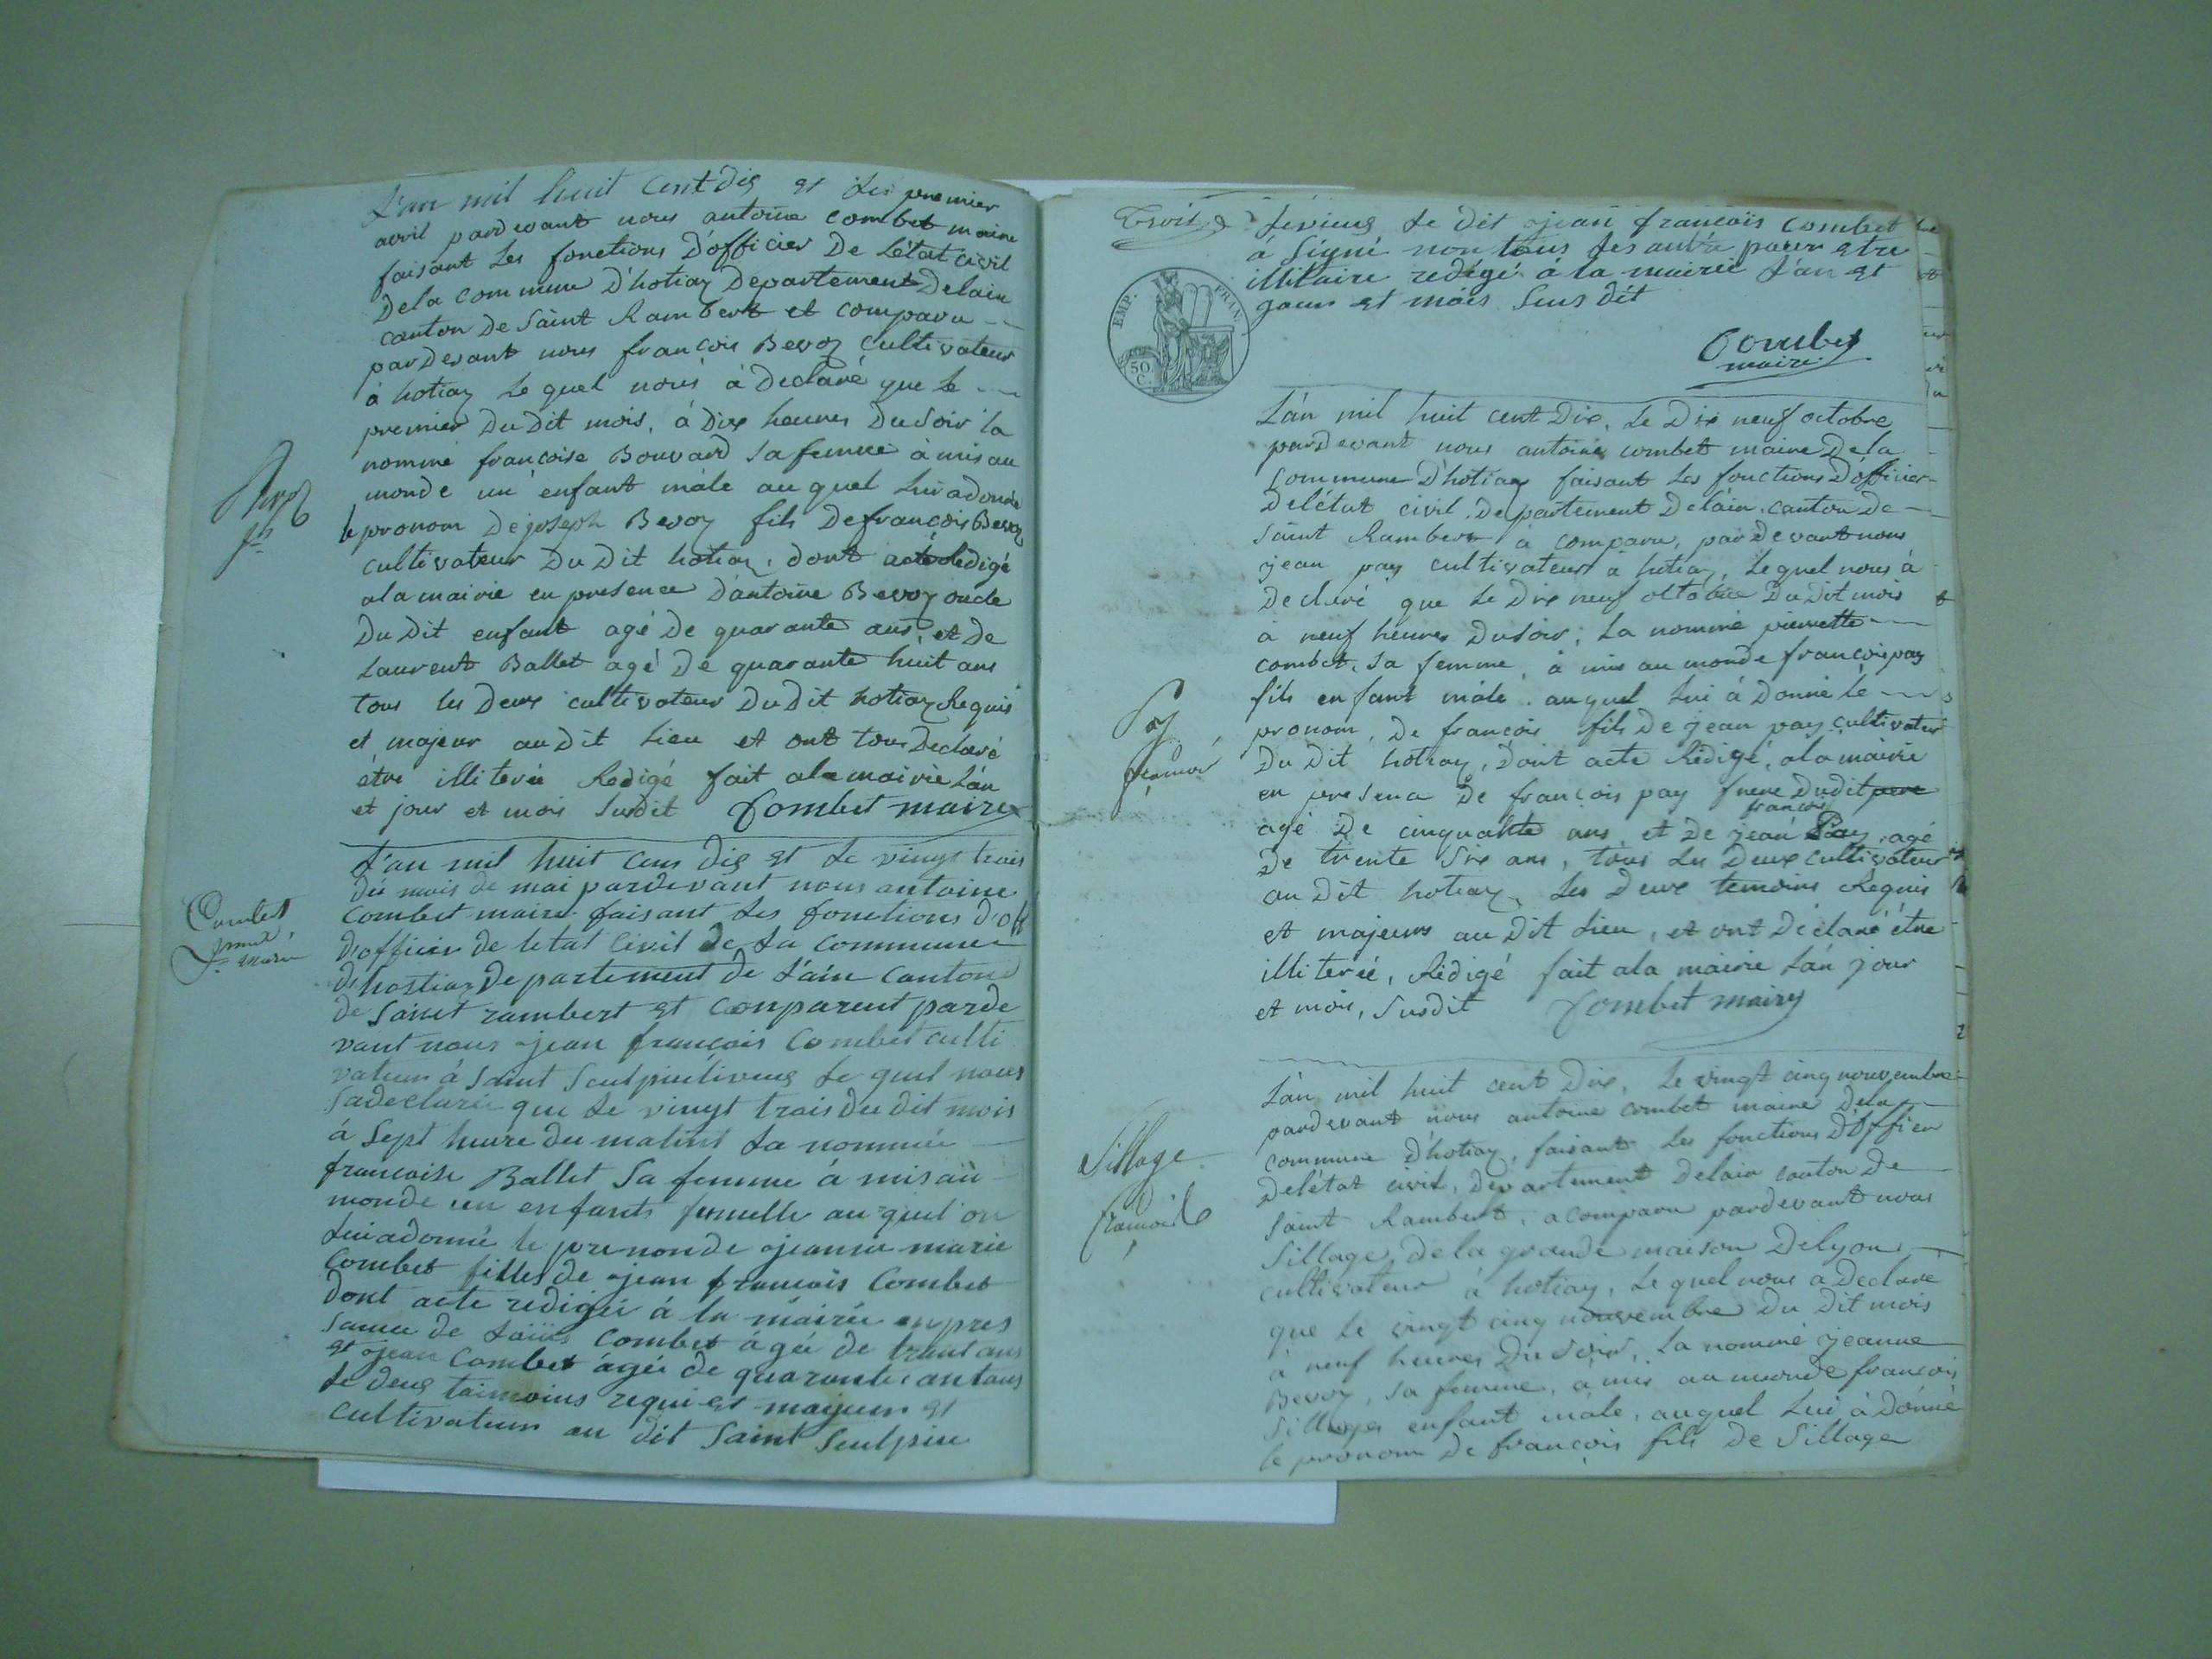 L'an mil huit cent dig et les premier
avril pardevant nous antoine combet maire
faisant Les fonctions D'officier De L'état civil
Dela commune D'hotiaz Departement Delain
canton De saint Rambert et comparu
pardevant nous françois Bevoz cultivateur
à hotiaz Le quel nous à Declaré que le
premier Du Dit mois, à Dix heures Du soir la
nommé françoise Bouvard sa femme à mis au
monde un enfant mâle au quel lui a donné
le pronom De joseph Bevoz fils De françois Bevoz
cultivateur Du Dit hotiaz, dont acte Redigé
a la mairie en presence D'antoine Bevoz oncle
Du Dit enfant agé De quarante ans, et de
Laurent Ballet agé De quarante huit ans
tous les Deux cultivateur Du Dit hotiaz Requis
et majeur au Dit Lieu et ont tous Declaré
être illiterée Redigé fait a la mairie L'an
et jour et mois susdit Combet maire
L'an mil huit cens dig et Le vingt trois
du mois de mai pardevant nous antoine
Combet maire faisant Les fonctions d'off
d'officier de letat Civil de La Commune
d'hostiaz Departement de L'ain Canton
de saint rambert et Comparent parde
vant nous jean françois Combet culti
vateur á saint Le quel nous
a declarée que Le vingt trois du dit mois
á sept heure du matint La nommée
francoise Ballet Sa femme á mis au
monde un enfants femelle au quel on
Lui a donné le prenon de jeanne marie
Combet filles de jean francois Combet
dont acte redigée á la mairie en pres
sance de Combet ágée de ans
et jean Combet ágée de quarante an tous
Le deug taimoins requi et majeur et
Cultivateur au dit Saint Sculpice
Bevoz
jh
Combet
jeanne
marie
Le dit jean françois Combet
á Signé non tous Les autre pour etre
illitaire redigé á la mairie L'an et
jour et mois Sus dit
Combet
maire
EMP. FRAN.
50
C.
L'an mil huit cent Dix, Le Dix neuf octobre
pardevant nous antoine combet maire Dela
commune D'hotiaz faisant Les fonctions D'officier
Delétat civil, Departement Delain, canton De
saint Rambert à comparu, pardevant nous
jean pay cultivateur à hotiaz, Lequel nous à
Declaré que Le Dix neuf octobre Du Dit mois
à neuf heures Du soir, La nommé pierrette
combet, sa femme, à mis au monde françois pay
fils enfant mâle, auquel lui à Donné le
pronom, De françois fils De jean pay cultivateur
Du Dit hotiaz, Dont acte Rédigé, a la mairie
en presence De françois pay frere Du dit pere
françois
agé De cinquante ans et De jean Pay, agé
De trente six ans, tous Les Deux cultivateur
au Dit hotiaz, Les Deux temoins Requis
et majeurs au Dit Lieu, et ont Déclaré être
illiterée, Rédigé fait a la mairie L'an jour
et mois, susdit Combet maire
L'an mil huit cent Dix, Le vingt cinq nouvembre
pardevant nous antoine combet maire Dela
commune D'hotiaz, faisant Les fonctions D'officier
Delétat civil, Departement Delain canton De
saint Rambert, a comparu pardevant nous
Sillage, De la grande maison De Lyon
cultivateur à hotiaz, Le quel nous a Declaré
que le vingt cinq nouvembre Du Dit mois
à neuf heures Du soir, La nommé jeanne
Bevoz, sa femme, à mis au monde françois
Sillage enfant male, auquel Lui à donné
le pronom De françois fils De Sillage
Pay
françois
Sillage
françois